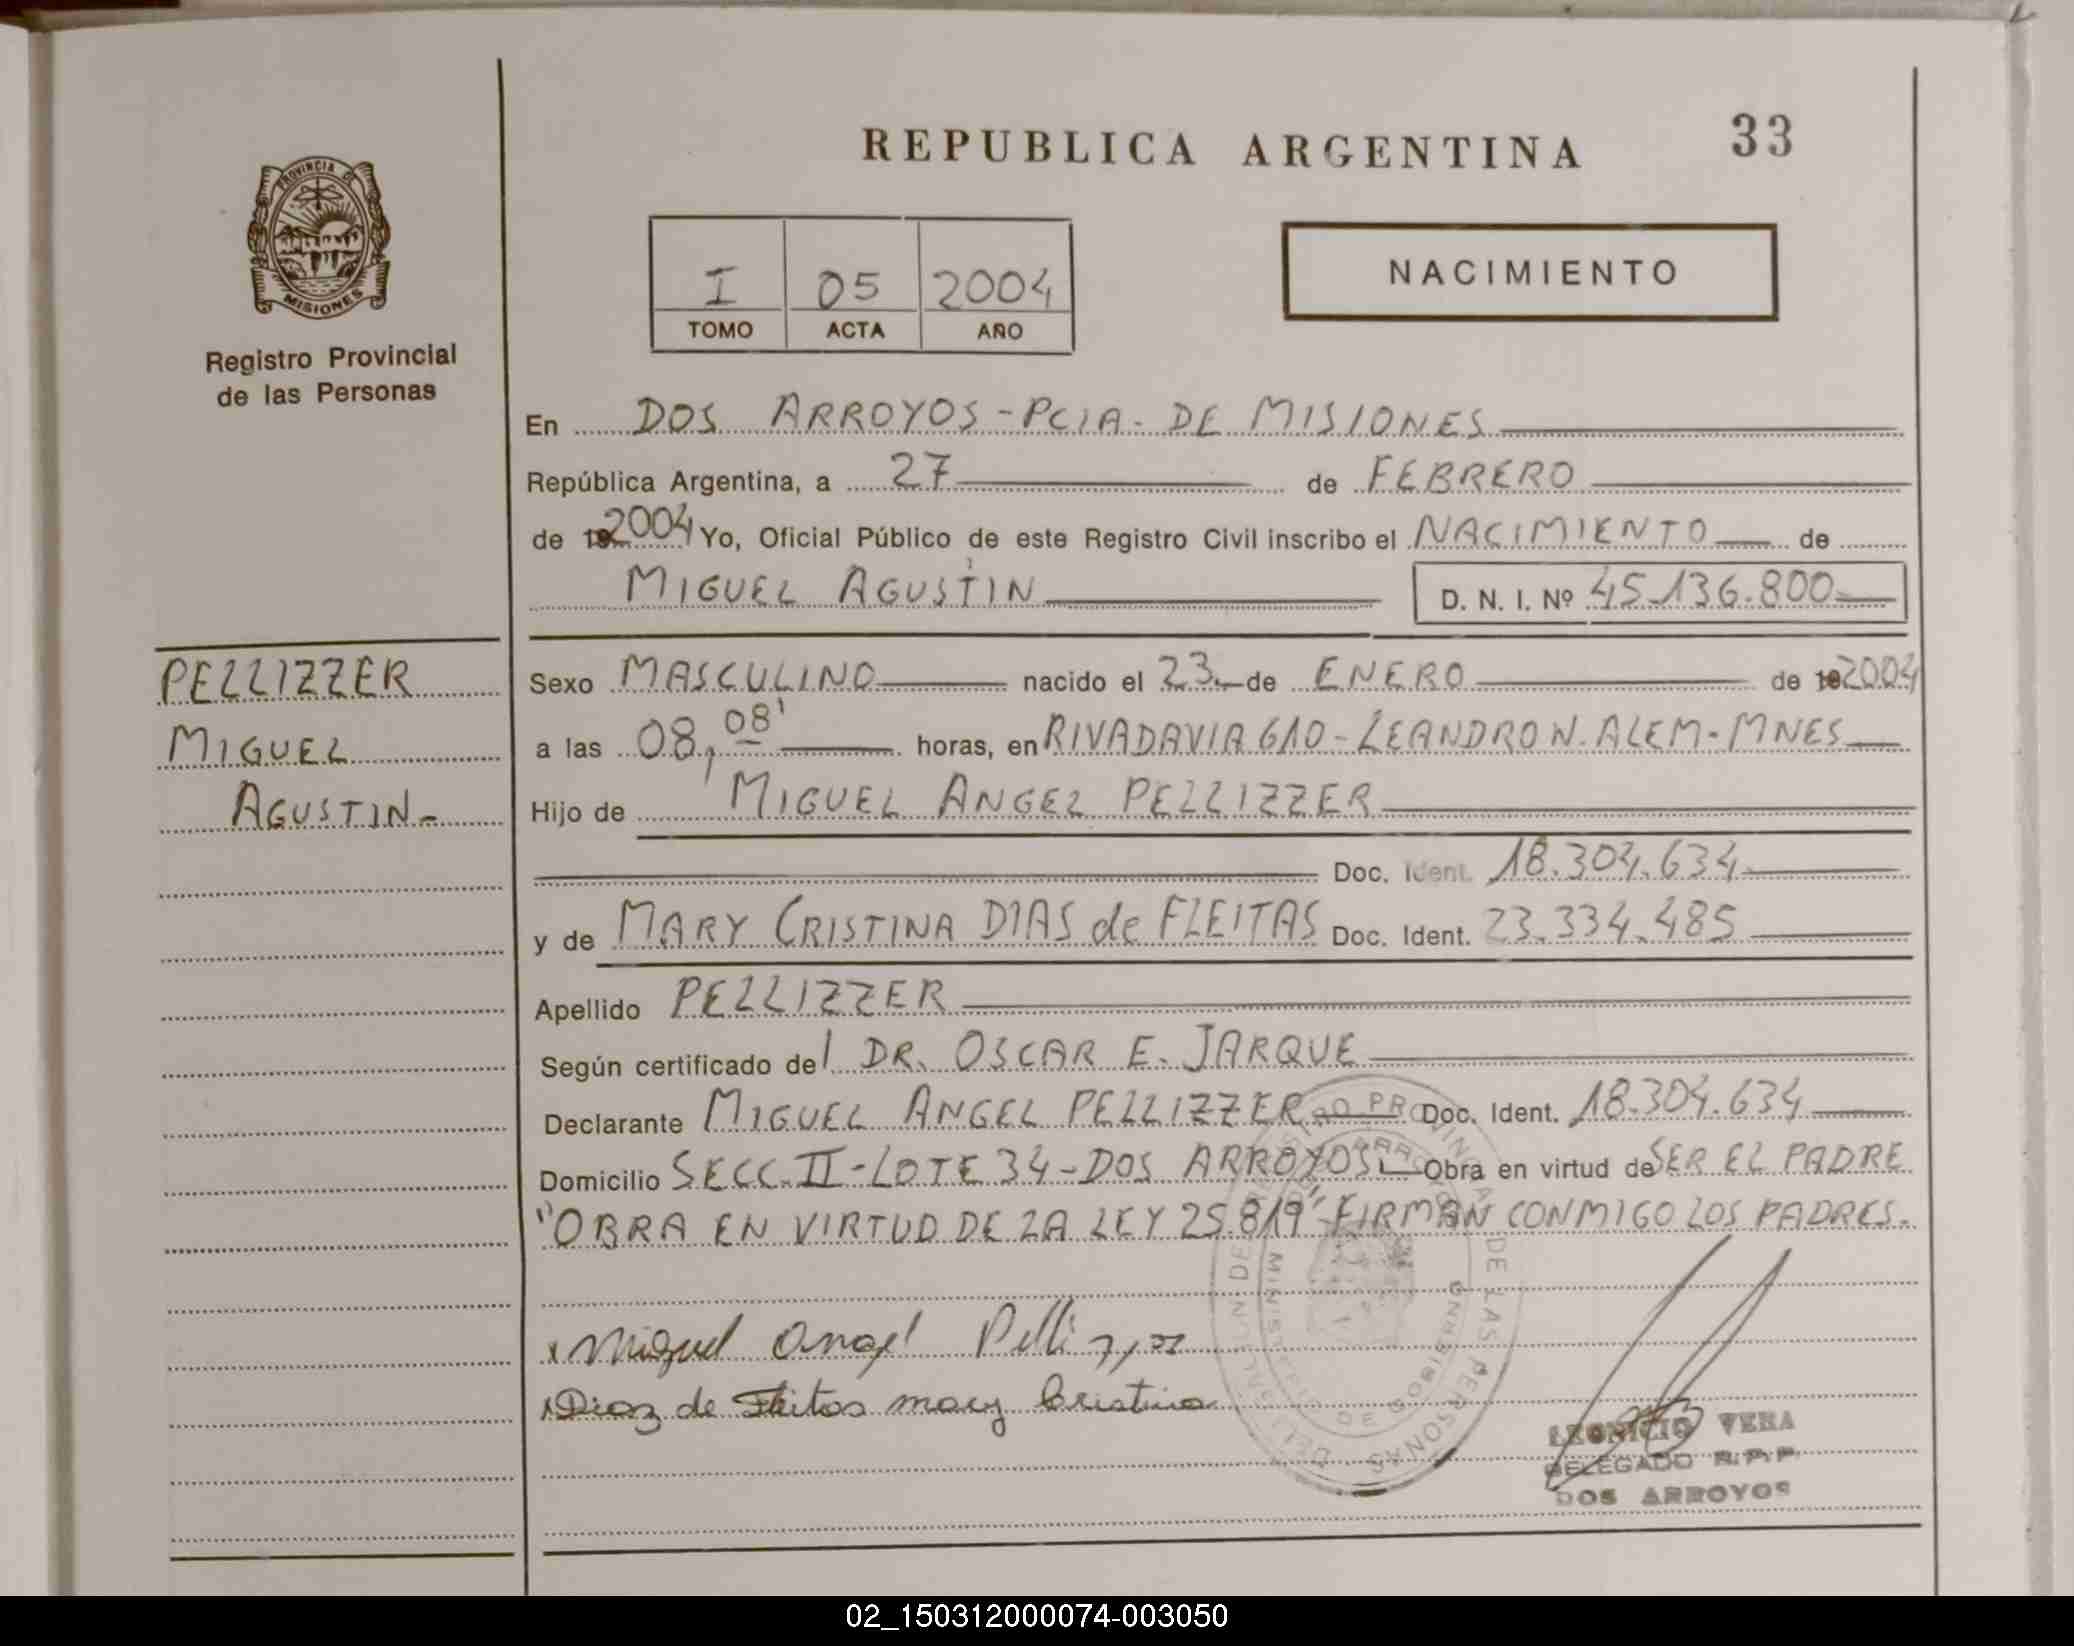 REPUBLICA ARGENTINA
33
PROVINCIA DE
MISIONES
Registro Provincial
de las Personas
I 05 2004
TOMO ACTA AÑO
NACIMIENTO
En DOS ARROYOS - PCIA. DE MISIONES
República Argentina, a 27 de FEBRERO
de 2004 Yo, Oficial Público de este Registro Civil inscribo el NACIMIENTO de
MIGUEL AGUSTÍN D. N. I. Nº 45.136.800
PELLIZZER
MIGUEL
AGUSTIN-
Sexo MASCULINO nacido el 23 de ENERO de 2004
a las 08,08' horas, en RIVADAVIA 610 - LEANDRO N. ALEM - MNES
Hijo de MIGUEL ANGEL PELLIZZER
Doc. Ident. 18.304.634
y de MARY CRISTINA DIAS de FLEITAS Doc. Ident. 23.334.485
Apellido PELLIZZER
Según certificado del DR. OSCAR E. JARQUE
Declarante MIGUEL ANGEL PELLIZZER Doc. Ident. 18.304.634
Domicilio SECC. II - LOTE 34 - DOS ARROYOS Obra en virtud de SER EL PADRE
"OBRA EN VIRTUD DE LA LEY 25.819" FIRMAN CONMIGO LOS PADRES.
x Miguel Angel Pellizzer
x Diaz de Fleitas mary Cristina
LEONICIO VERA
DELEGADO R.P.P.
DOS ARROYOS
02_150312000074-003050